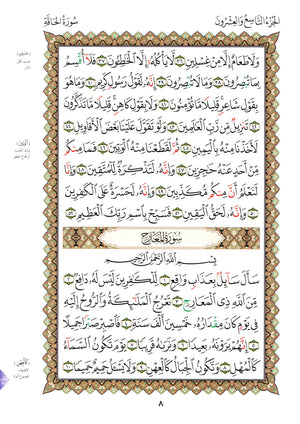 الجزء التاسع والعشرون
سورة الحاقة
ولا طعام إلا من غسلين ٣٦ لا يأكله إلا الخاطئون ٣٧ فلا أقسم
بما تبصرون ٣٨ وما لا تبصرون ٣٩ إنه لقول رسول كريم ٤٠ وما هو
بقول شاعر قليلا ما تؤمنون ٤١ ولا بقول كاهن قليلا ما تذكرون
٤٢ تنزيل من رب العالمين ٤٣ ولو تقول علينا بعض الأقاويل ٤٤
لأخذنا منه باليمين ٤٥ ثم لقطعنا منه الوتين ٤٦ فما منكم
من أحد عنه حاجزين ٤٧ وإنه لتذكرة للمتقين ٤٨ وإنا
لنعلم أن منكم مكذبين ٤٩ وإنه لحسرة على الكافرين
٥٠ وإنه لحق اليقين ٥١ فسبح باسم ربك العظيم ٥٢
سورة المعارج
بسم الله الرحمن الرحيم
سأل سائل بعذاب واقع ١ للكافرين ليس له دافع ٢
من الله ذي المعارج ٣ تعرج الملائكة والروح إليه
في يوم كان مقداره خمسين ألف سنة ٤ فاصبر صبرا جميلا
٥ إنهم يرونه بعيدا ٦ ونراه قريبا ٧ يوم تكون السماء
كالمهل ٨ وتكون الجبال كالعهن ٩ ولا يسأل حميم حميما ١٠
٨